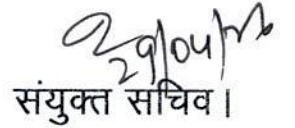 29/04/26
संयुक्त सचिव।